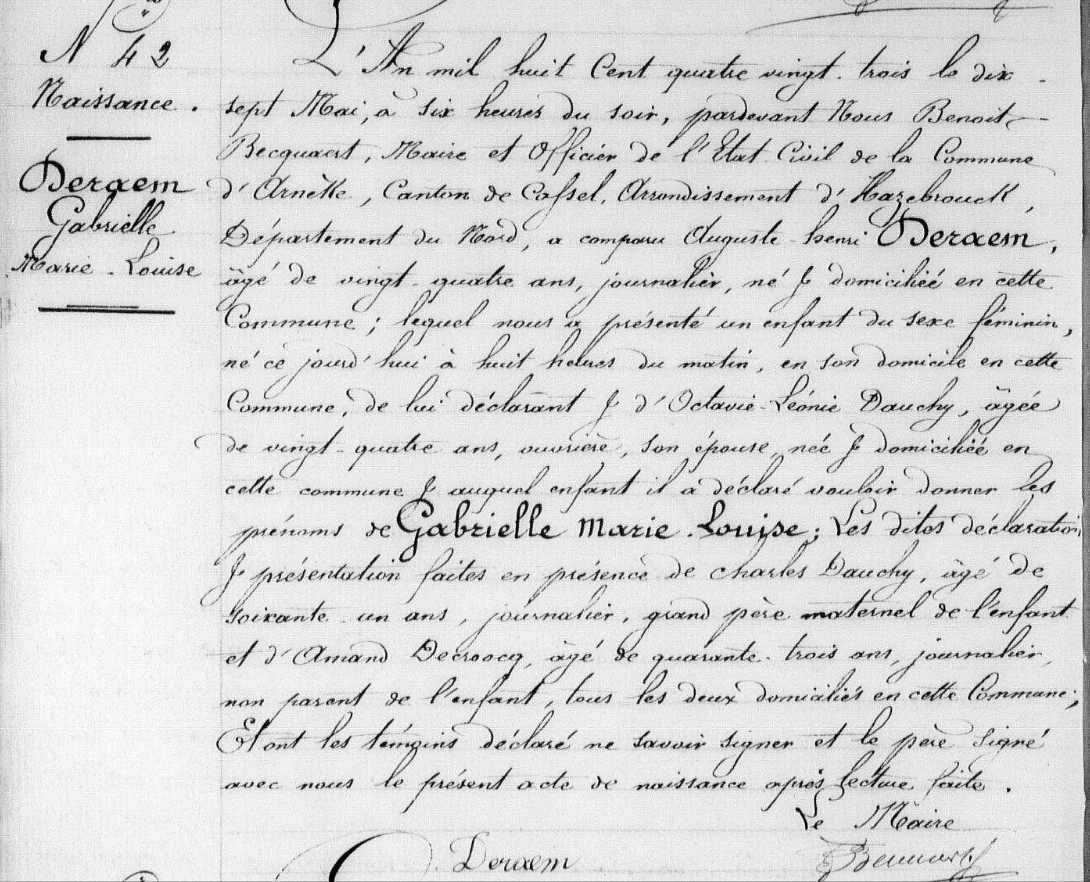 N 42
Naissance.
Deraem
Gabrielle
Marie-Louise
L'An mil huit Cent quatre vingt-trois le dix-
sept Mai, à six heures du soir, pardevant Nous Benoit
Becquaert, Maire et Officier de l'Etat-Civil de la Commune
d'Arnèke, Canton de Cassel, Arrondissement d'Hazebrouck,
Département du Nord, a comparu Auguste-henri Deraem,
âgé de vingt-quatre ans, journalier, né & domiciliée en cette
Commune; lequel nous a présenté un enfant du sexe féminin,
né ce jourd'hui à huit heures du matin, en son domicile en cette
Commune, de lui déclarant & d'Octavie-Léonie Dauchy, âgée
de vingt-quatre ans, ouvrière, son épouse, née & domiciliée en
cette commune & auquel enfant il a déclaré vouloir donner les
prénoms de Gabrielle Marie-Louise; Les dites déclaration
& présentation faites en présence de charles Dauchy, âgé de
soixante-un ans, journalier, grand père maternel de l'enfant
et d'Amand Decroocq, âgé de quarante-trois ans, journalier,
non parent de l'enfant, tous les deux domiciliés en cette Commune;
Et ont les témoins déclaré ne savoir signer et le père signé
avec nous le présent acte de naissance après lecture faite.
Le Maire
Deraem